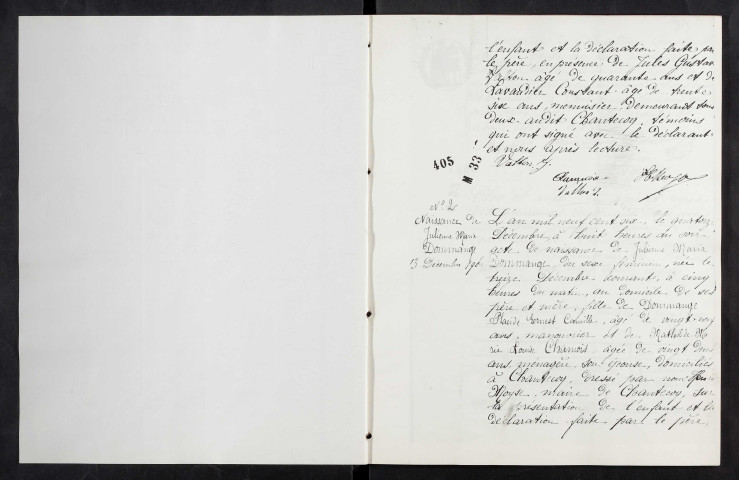 l'enfant et la déclaration faite par
le père, en présence de Jules Gustave
âgé de quarante ans et de
Lavandier Constant âgé de trente
six ans, menuisier, demeurant tous
deux audit Chantecoq, témoins
qui ont signé avec le déclarant
et nous après lecture.
405
M 33
N° 2
Naissance de
Julienne Maria
Dommange
13 Décembre 1906
L'an mil neuf cent six, le quatorze
Décembre, à huit heures du soir
acte de naissance de Julienne Maria
Dommange, du sexe féminin, née le
treize Décembre courant, à cinq
heures du matin, au domicile de ses
père et mère, fille de Dommange
Ernest Camille, âgé de vingt-neuf
ans, manouvrier et de Mathilde Ma
rie Louise âgée de vingt deux
ans ménagère, son épouse, domiciliés
à Chantecoq, dressé par nous
Moyse, maire de Chantecoq, sur
la présentation de l'enfant et la
déclaration faite par le père,